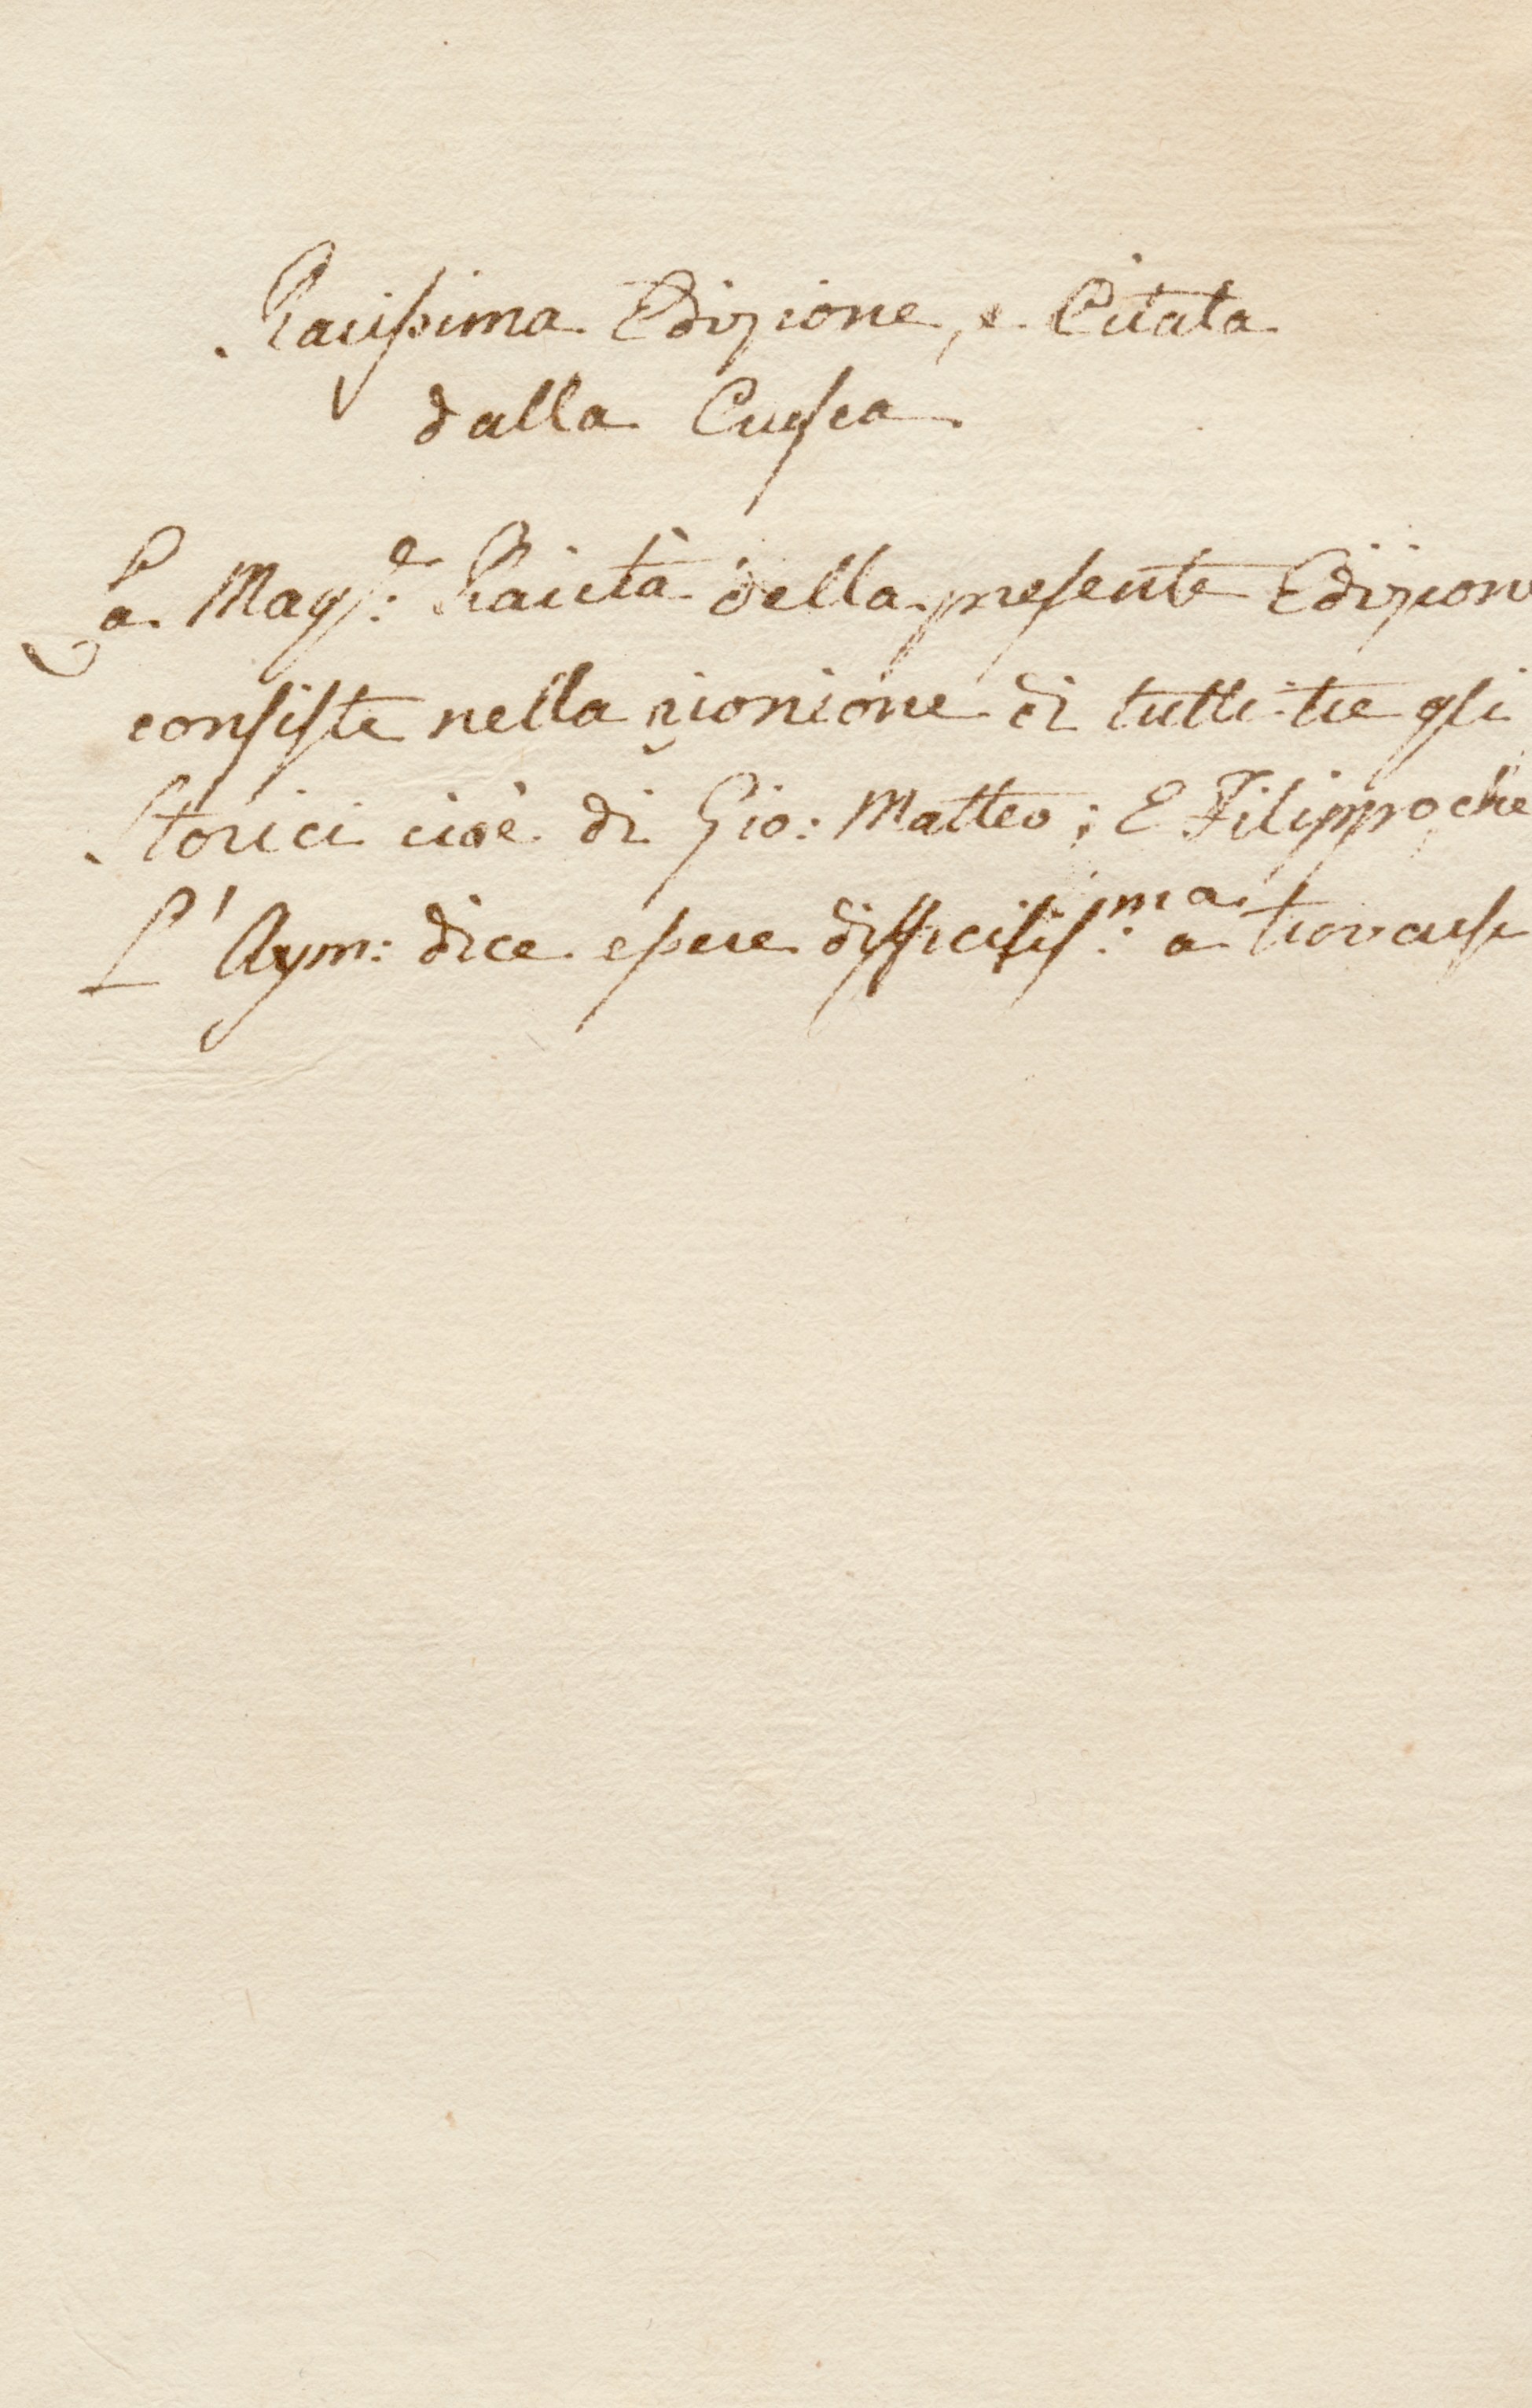 Rarissima Edizione, e Citata
dalla Crusca
La Magg.e Rarità della presente Edizione
consiste nella rionione di tutti tre gli
Storici cioè di Gio: Matteo; E Filippo che
L'Aym: dice essere difficilis.ma a trovarsi